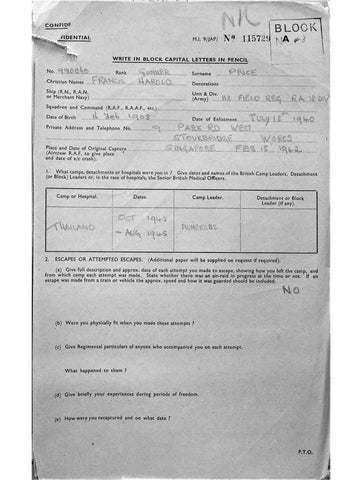 CONFIDE
IDENTIAL
N/C
BLOCK
M.I. 9/JAP/ Nº 115729
NA
WRITE IN BLOCK CAPITAL LETTERS IN PENCIL
No. Rank GUNNER Surname PRICE
Christian Names FRANCIS HAROLD Decorations
Ship (R.N., R.A.N. or Merchant Navy)
Unit & Div. (Army) 118 FIELD REG RA 18 DIV
Squadron and Command (R.A.F., R.A.A.F., etc.)
Date of Birth 4 Feb 1908 Date of Enlistment JULY 18th 1940
Private Address and Telephone No. 9 PARK RD WEST
STOURBRIDGE WORCS
Place and Date of Original Capture SINGAPORE FEB 15 1942
(Aircrew R.A.F. to give place
and date of a/c crash).
1. What camps, detachments or hospitals were you in ? Give dates and names of the British Camp Leaders, Detachment
(or Block) Leaders or, in the case of hospitals, the Senior British Medical Officers.
Camp or Hospital. Dates. Camp Leader. Detachment or Block
Leader (if any).
THAILAND OCT 1942
– AUG 1945
NUMEROUS
2. ESCAPES OR ATTEMPTED ESCAPES. (Additional paper will be supplied on request if required).
(a) Give full description and approx. date of each attempt you made to escape, showing how you left the camp, and
from which camp each attempt was made. State whether there was an air-raid in progress at the time or not. If an
escape was made from a train or vehicle the approx. speed and how it was guarded should be included.
NO
(b) Were you physically fit when you made these attempts ?
(c) Give Regimental particulars of anyone who accompanied you on each attempt.
What happened to them ?
(d) Give briefly your experiences during periods of freedom.
(e) How were you recaptured and on what date ?
P.T.O.